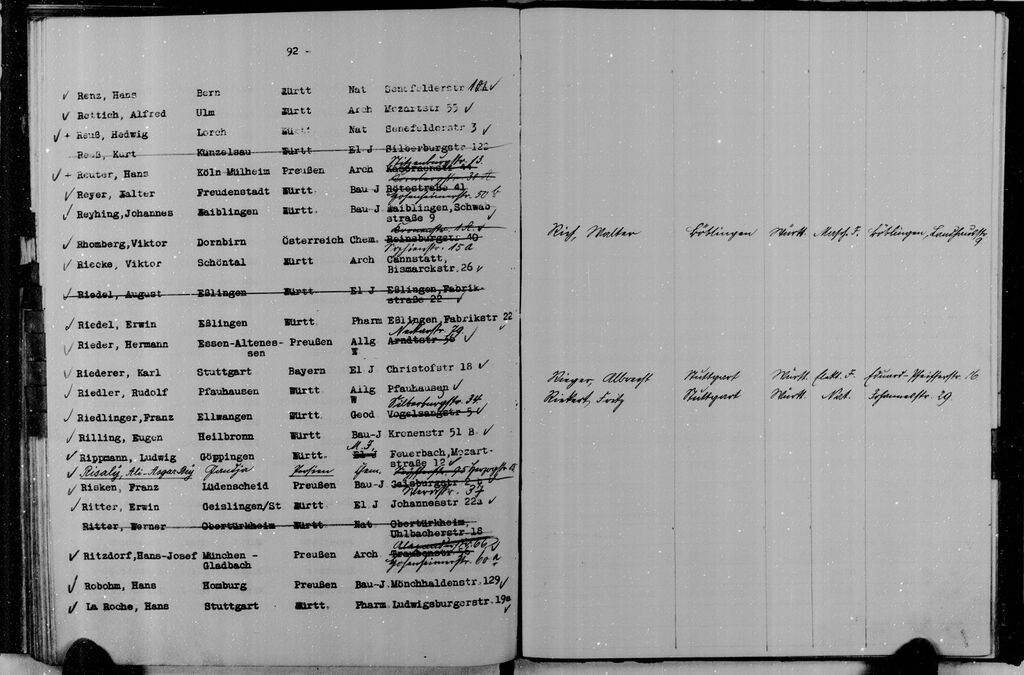 92 -
Renz, Hans Bern Württ Nat Senefelderstr
Rettich, Alfred Ulm Württ Arch Mozartstr 55
+ Reuß, Hedwig Lorch Württ Nat Senefelderstr 3
Reuß, Kurt Künzelsau Württ El J Silberburgstr 122
Stitzenburgstr. 13.
+ Reuter, Hans Köln-Mülheim Preußen Arch
Reyer, Walter Freudenstadt Württ. Bau J Rötestraße 41
Rosenbergstr. 50
Reyhing,Johannes Waiblingen Württ. Bau-J Waiblingen,Schwab
straße 9
Rhomberg,Viktor Dornbirn Österreich Chem. Reinsburgstr 40
15a
Riecke, Viktor Schöntal Württ Arch Cannstatt,
Bismarckstr. 26
Riedel, August Eßlingen Württ El J Eßlingen,Fabrik-
straße 22
Riedel, Erwin Eßlingen Württ. Pharm Eßlingen,Fabrikstr 22
Neckarstr. 79
Rieder, Hermann Essen-Altenes- Preußen Allg Arndtstr 56
sen W
Riederer, Karl Stuttgart Bayern El J Christofstr 18
Riedler, Rudolf Pfauhausen Württ. Allg Pfauhausen
W Silberburgstr. 34
Riedlinger,Franz Ellwangen Württ. Geod Vogelsangstr 5
Rilling, Eugen Heilbronn Württ Bau-J Kronenstr 51 B.
M. J.
Rippmann, Ludwig Göppingen Württ El J Feuerbach, Mozart-
straße 12
Risalÿ, Ali-Asgar-Mej Gandja Persien Gem. Herzogstr
Risken, Franz Lüdenscheid Preußen Bau-J Gaisburgstr
Werastr. 37
Ritter, Erwin Geislingen/St Württ El J Johannesstr 22a
Ritter, Werner Obertürkheim Württ Nat Obertürkheim,
Uhlbacherstr 18
Ritzdorf,Hans-Josef München - Preußen Arch.
Gladbach 60
Robohm, Hans Homburg Preußen Bau-J.Mönchhaldenstr.129
La Roche, Hans Stuttgart Württ. Pharm Ludwigsburgerstr.19a
Rieß, Walter Böblingen Württ Masch. J. Böblingen, Landhausstr
Rieger, Albrecht Stuttgart Württ. Elekt. J. Eduard-Pfeifferstr. 16
Riekert, Fritz Stuttgart Württ Nat. Johannesstr. 29